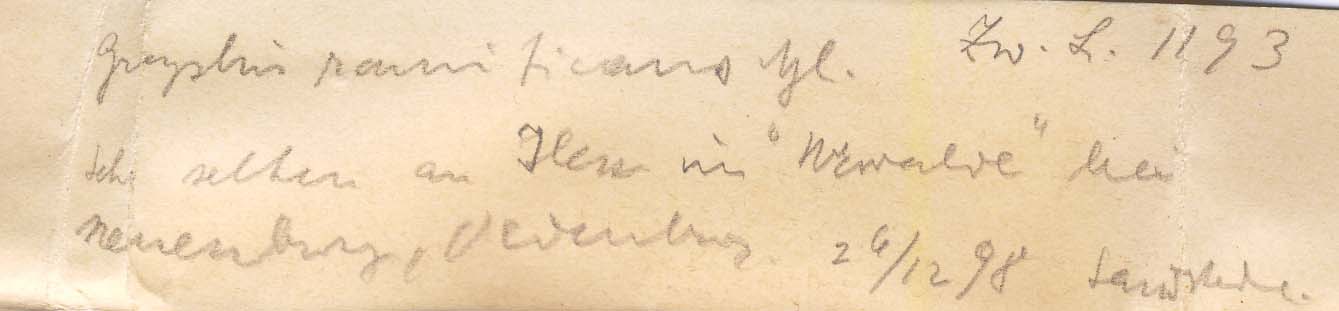 Graphis ramificans Nyl. Zw. L. 1193
Sehr selten an Ilex im "Urwalde" bei
Neuenburg, Oldenburg. 26/12 98 Sandstede.